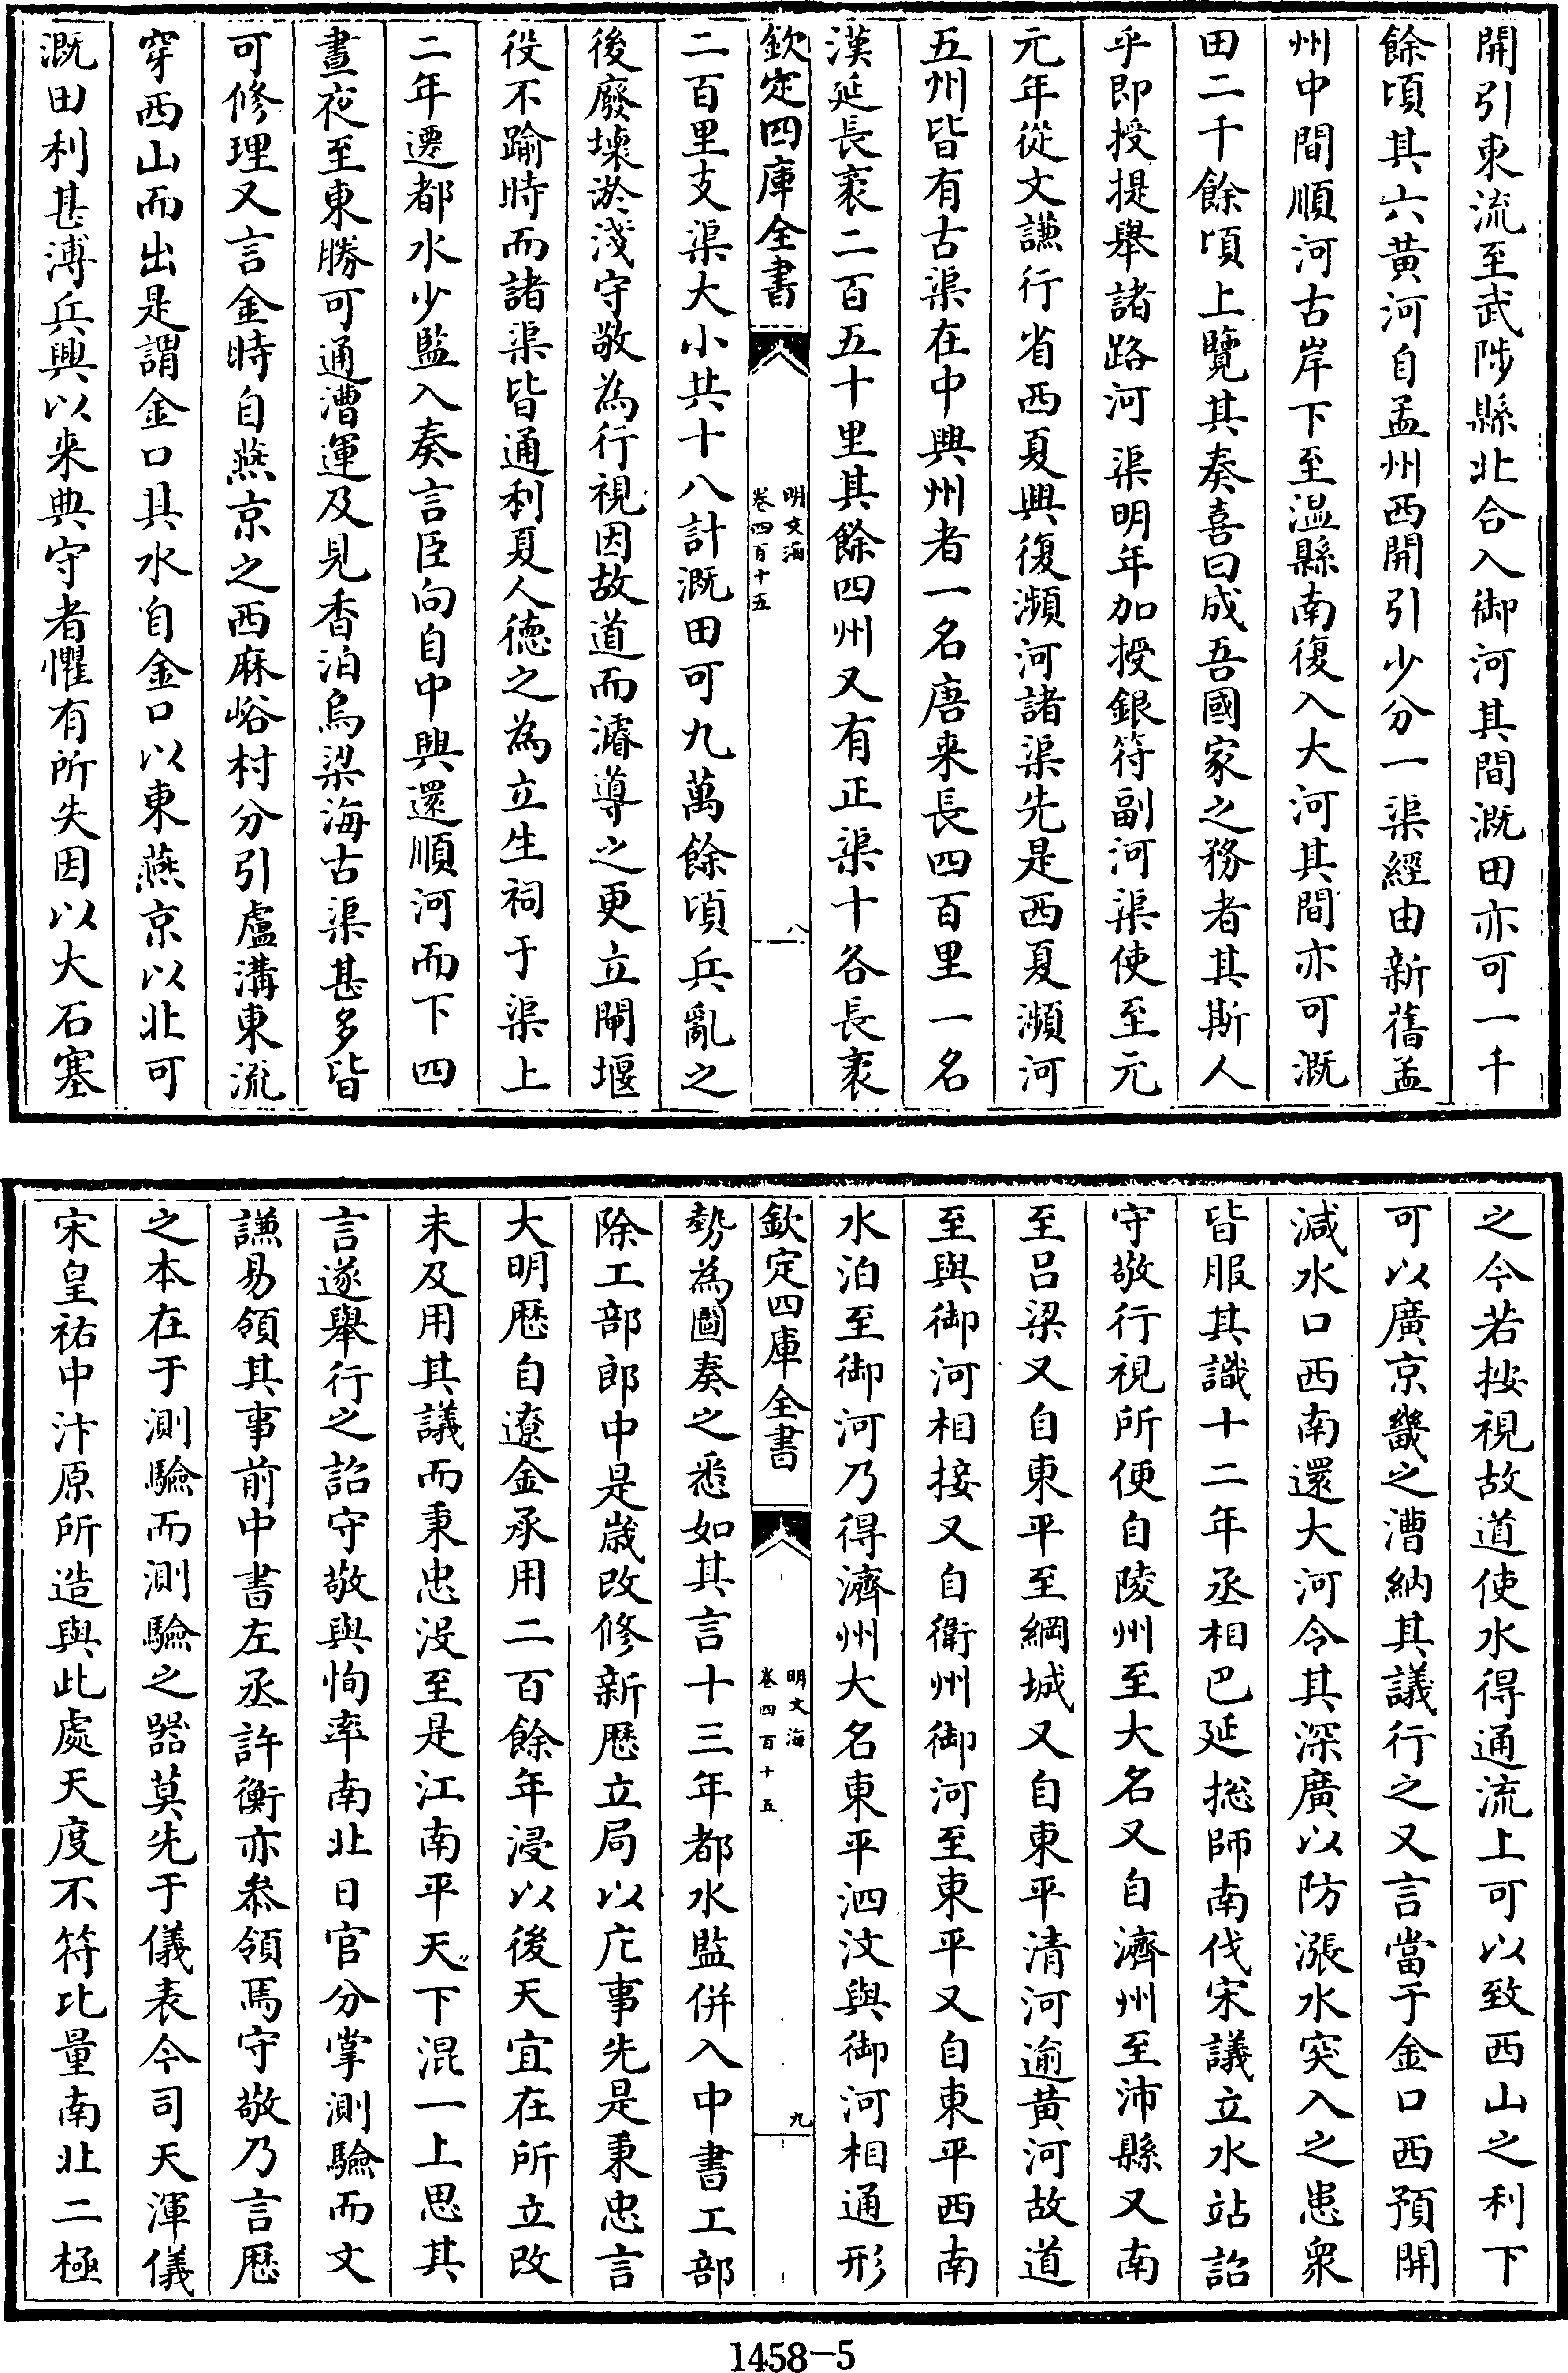 開引東流至武陟縣北合入御河其間溉田亦可一千
餘頃其六黄河自孟州西開引少分一渠經由新舊孟
州中間順河古岸下至温縣南復入大河其間亦可溉
田二千餘頃上覽其奏喜曰成吾國家之務者其斯人
乎即授提舉諸路河渠明年加授銀符副河渠使至元
元年從文謙行省西夏興復瀕河諸渠先是西夏瀕河
五州皆有古渠在中興州者一名唐来長四百里一名
漢延長袤二百五十里其餘四州又有正渠十各長袤
欽定四庫全書
明文海
卷四百十五
八
二百里支渠大小共十八計溉田可九萬餘頃兵亂之
後廢壊淤淺守敬為行視因故道而濬導之更立閘堰
役不踰時而諸渠皆通利夏人徳之為立生祠于渠上
二年遷都水少監入奏言臣向自中興還順河而下四
晝夜至東勝可通漕運及見香泊烏梁海古渠甚多皆
可修理又言金時自燕京之西麻峪村分引盧溝東流
穿西山而出是謂金口其水自金口以東燕京以北可
溉田利甚溥兵興以来典守者懼有所失因以大石塞
之今若按視故道使水得通流上可以致西山之利下
可以廣京畿之漕納其議行之又言當于金口西預開
減水口西南還大河令其深廣以防漲水突入之患衆
皆服其識十二年丞相巴延総師南伐宋議立水站詔
守敬行視所便自陵州至大名又自濟州至沛縣又南
至吕梁又自東平至綱城又自東平清河逾黄河故道
至與御河相接又自衛州御河至東平又自東平西南
水泊至御河乃得濟州大名東平泗汶與御河相通形
欽定四庫全書
明文海
卷四百十五
九
勢為圖奏之悉如其言十三年都水監併入中書工部
除工部郎中是歳改修新厯立局以庀事先是秉忠言
大明厯自遼金承用二百餘年浸以後天宜在所立改
未及用其議而秉忠没至是江南平天下混一上思其
言遂舉行之詔守敬與恂率南北日官分掌測驗而文
謙易領其事前中書左丞許衡亦叅領焉守敬乃言厯
之本在于測驗而測驗之器莫先于儀表今司天渾儀
宋皇祐中汴原所造與此處天度不符比量南北二極
1458-5